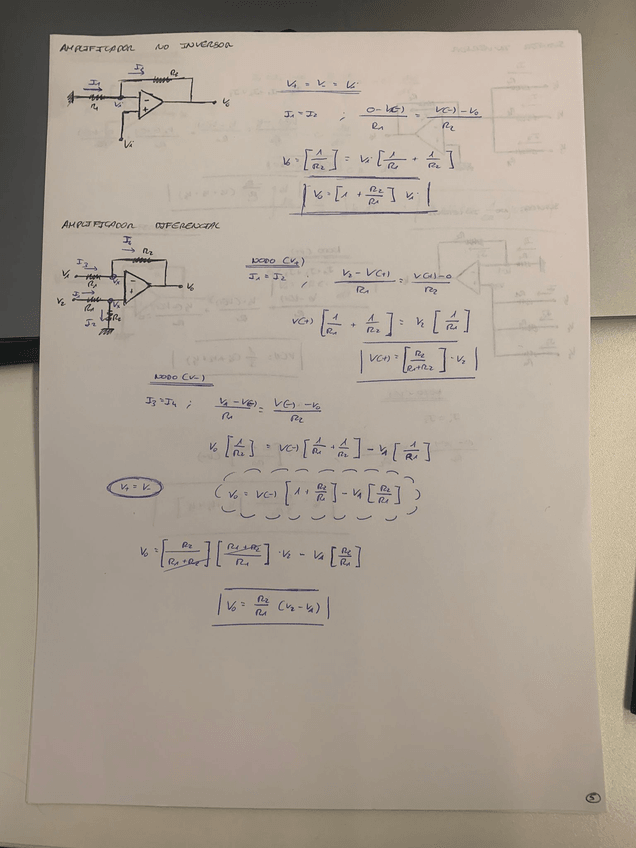 AMPLIFICADOR NO INVERSOR
I1 I2 R2
R1 Vi - + Vo
Vi
V+ = V- = Vi
I1 = I2 ; (0 - V(-))/R1 = (V(-) - Vo)/R2
Vo = [1/R2] = Vi [1/R1 + 1/R2]
Vo = [1 + R2/R1] Vi
AMPLIFICADOR DIFERENCIAL
I4 R2
V1 I3 R1 Vx - + Vo
V2 I1 R1 Vx
I2 R2
NODO (V+)
I1 = I2 ; (V2 - V(+))/R1 = (V(+) - 0)/R2
V(+) [1/R1 + 1/R2] = V2 [1/R1]
V(+) = [R2/(R1+R2)] · V2
NODO (V-)
I3 = I4 ; (V1 - V(-))/R1 = (V(-) - Vo)/R2
Vo [1/R2] = V(-) [1/R1 + 1/R2] - V1 [1/R1]
V+ = V-
Vo = V(-) [1 + R2/R1] - V1 [R2/R1]
Vo = [R2/(R1+R2)] [(R1+R2)/R1] · V2 - V1 [R2/R1]
Vo = R2/R1 (V2 - V1)
5